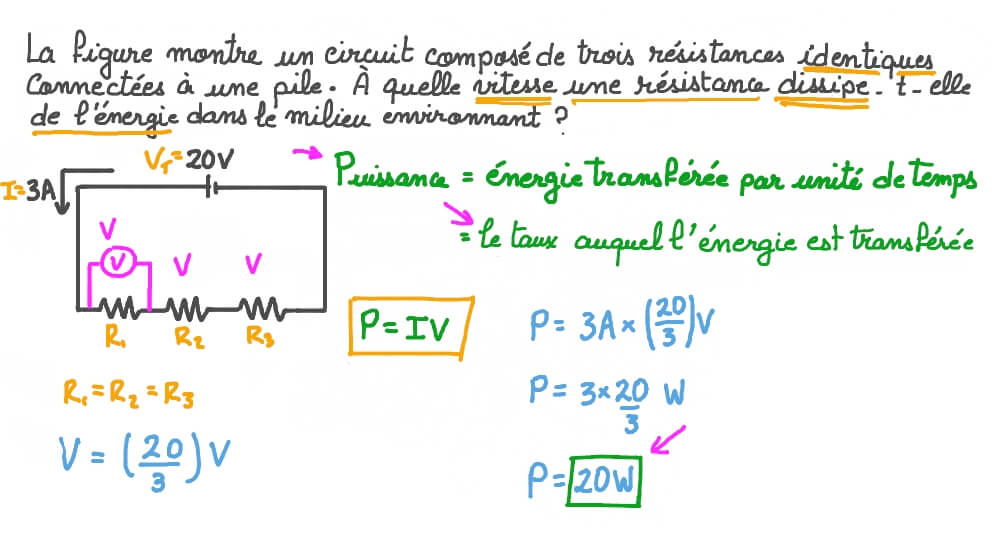 La figure montre un circuit composé de trois résistances identiques
Connectées à une pile. À quelle vitesse une résistance dissipe-t-elle
de l'énergie dans le milieu environnant ?
V_T=20V
I=3A
Puissance = énergie transférée par unité de temps
= le taux auquel l'énergie est transférée
V
V V V
R₁ R₂ R₃
P=IV
P= 3A×(20/3)V
R₁=R₂=R₃
P= 3×20/3 W
V = (20/3)V
P=20W